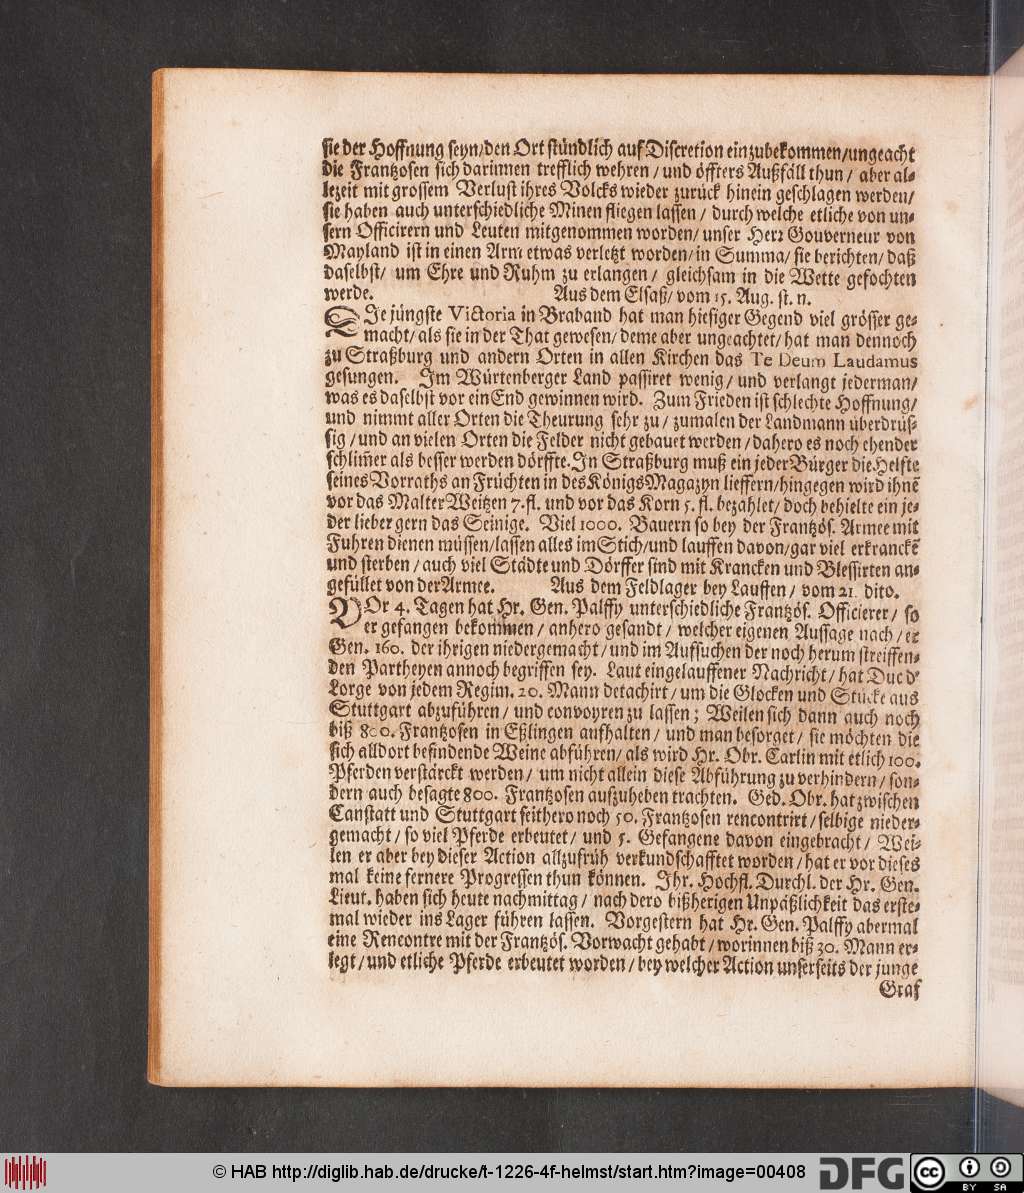 sie der Hoffnung seyn/den Ort stündlich auf Discretion einzubekommen/ungeacht
die Frantzosen sich darinnen trefflich wehren / und öffters Außfäll thun / aber al-
lezeit mit grossem Verlust ihres Volcks wieder zurück hinein geschlagen werden/
sie haben auch unterschiedliche Minen fliegen lassen / durch welche etliche von un-
sern Officirern und Leuten mitgenommen worden/ unser Herr Gouverneur von
Mayland ist in einen Arm etwas verletzt worden/ in Summa/ sie berichten/ daß
daselbst/ um Ehre und Ruhm zu erlangen / gleichsam in die Wette gefochten
werde. Aus dem Elsaß/ vom 15. Aug. st. n.
DIe jüngste Victoria in Braband hat man hiesiger Gegend viel grösser ge-
macht/ als sie in der That gewesen/ deme aber ungeachtet/ hat man dennoch
zu Straßburg und andern Orten in allen Kirchen das Te Deum Laudamus
gesungen. Im Würtenberger Land passiret wenig/ und verlangt jederman/
was es daselbst vor ein End gewinnen wird. Zum Frieden ist schlechte Hoffnung/
und nimmt aller Orten die Theurung sehr zu / zumalen der Landmann überdrüs-
sig / und an vielen Orten die Felder nicht gebauet werden / dahero es noch ehender
schlim̃er als besser werden dörffte. In Straßburg muß ein jeder Bürger die Helfte
seines Vorraths an Früchten in des Königs Magazyn lieffern/hingegen wird ihnẽ
vor das Malter Weitzen 7.fl. und vor das Korn 5. fl. bezahlet/ doch behielte ein je-
der lieber gern das Seinige. Viel 1000. Bauern so bey der Frantzös. Armee mit
Fuhren dienen müssen/lassen alles im Stich/und lauffen davon/gar viel erkranckẽ
und sterben / auch viel Städte und Dörffer sind mit Krancken und Blessirten an-
gefüllet von der Armee. Aus dem Feldlager bey Lauffen / vom 21. dito.
VOr 4. Tagen hat Hr. Gen. Palffy unterschiedliche Frantzös. Officierer / so
er gefangen bekommen / anhero gesandt / welcher eigenen Aussage nach / er
Gen. 160. der ihrigen niedergemacht / und im Aufsuchen der noch herum streiffen-
den Partheyen annoch begriffen sey. Laut eingelauffener Nachricht / hat Duc d'
Lorge von jedem Regim. 20. Mann detachirt / um die Glocken und Stücke aus
Stuttgart abzuführen / und convoyren zu lassen ; Weilen sich dann auch noch
biß 800. Frantzosen in Eßlingen aufhalten / und man besorget / sie möchten die
sich alldort befindende Weine abführen/ als wird Hr. Obr. Carlin mit etlich 100.
Pferden verstärckt werden / um nicht allein diese Abführung zu verhindern / son-
dern auch besagte 800. Frantzosen aufzuheben trachten. Ged. Obr. hat zwischen
Canstatt und Stuttgart seithero noch 50. Frantzosen rencontrirt / selbige nieder-
gemacht / so viel Pferde erbeutet / und 5. Gefangene davon eingebracht / Wei-
len er aber bey dieser Action allzufrüh verkundschafftet worden / hat er vor dieses
mal keine fernere Progressen thun können. Ihr. Hochfl. Durchl. der Hr. Gen.
Lieut. haben sich heute nachmittag / nach dero bißherigen Unpäßlichkeit das erste-
mal wieder ins Lager führen lassen. Vorgestern hat Hr. Gen. Palffy abermal
eine Rencontre mit der Frantzös. Vorwacht gehabt / worinnen biß 30. Mann er-
legt / und etliche Pferde erbeutet worden / bey welcher Action unserseits der junge
Graf
© HAB http://diglib.hab.de/drucke/t-1226-4f-helmst/start.htm?image=00408
DFG
cc BY SA